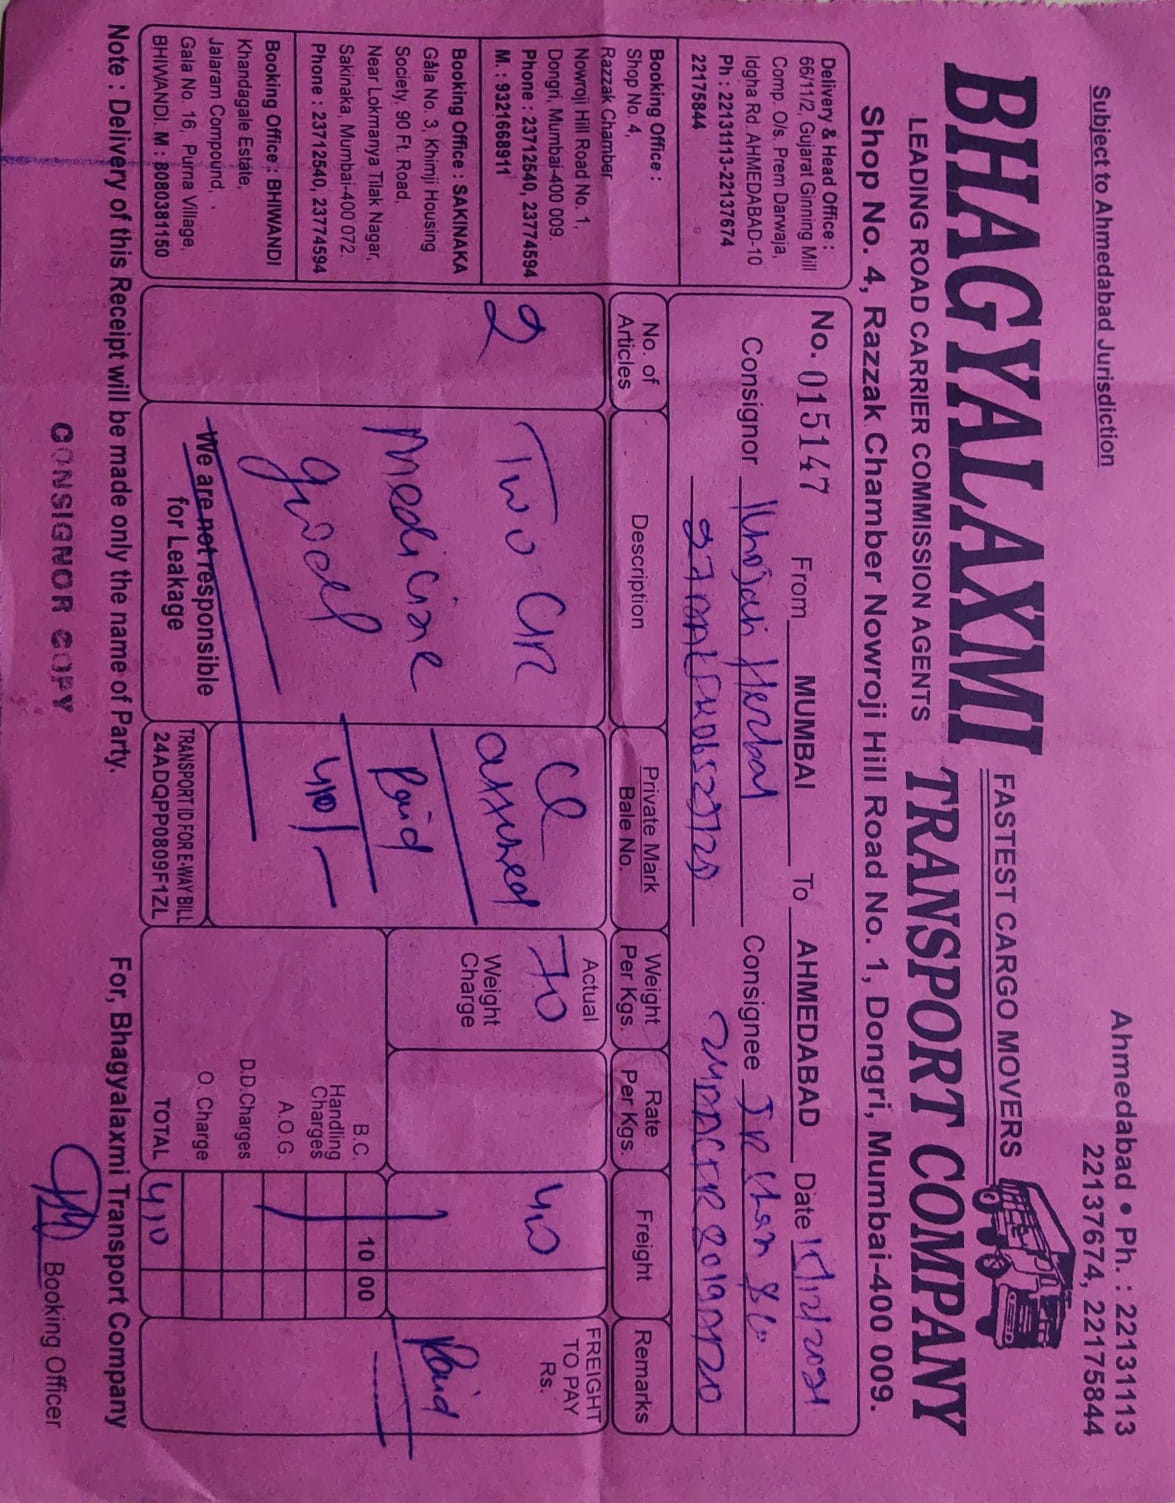 Subject to Ahmedabad Jurisdiction
Ahmedabad • Ph. : 22131113
22137674, 22175844
BHAGYALAXMI
FASTEST CARGO MOVERS
LEADING ROAD CARRIER COMMISSION AGENTS
TRANSPORT COMPANY
Shop No. 4, Razzak Chamber Nowroji Hill Road No. 1, Dongri, Mumbai-400 009.
Delivery & Head Office :
66/11/2, Gujarat Ginning Mill
Comp. O/s, Prem Darwaja,
Idgha Rd. AHMEDABAD-10
Ph : 22131113-22137674
22175844
No. 015147 From MUMBAI To AHMEDABAD Date
Consignor Herbal Consignee
Booking Office :
Shop No. 4,
Razzak Chamber,
Nowroji Hill Road No. 1,
Dongri, Mumbai-400 009.
Phone : 23712540, 23774594
M. : 9321668911
Booking Office : SAKINAKA
Gala No. 3, Khimji Housing
Society, 90 Ft. Road,
Near Lokmanya Tilak Nagar,
Sakinaka, Mumbai-400 072.
Phone : 23712540, 23774594
Booking Office : BHIWANDI
Khandagale Estate,
Jalaram Compound,
Gala No. 16, Purna Village,
BHIWANDI. M : 8080381150
No. of Articles
Description
Private Mark
Bale No.
Weight Per Kgs.
Rate Per Kgs.
Freight
Remarks
2
Two
Medicine
Paid
410/-
We are not responsible
for Leakage
TRANSPORT ID FOR E-WAY BILL
24ADQPP0809F1ZL
Actual
70
Weight
Charge
400
FREIGHT
TO PAY
Rs.
Paid
B.C. 10 00
Handling
Charges
A.O.G.
D.D.Charges
O. Charge
TOTAL 410
Note : Delivery of this Receipt will be made only the name of Party.
For, Bhagyalaxmi Transport Company
CONSIGNOR COPY
Booking Officer